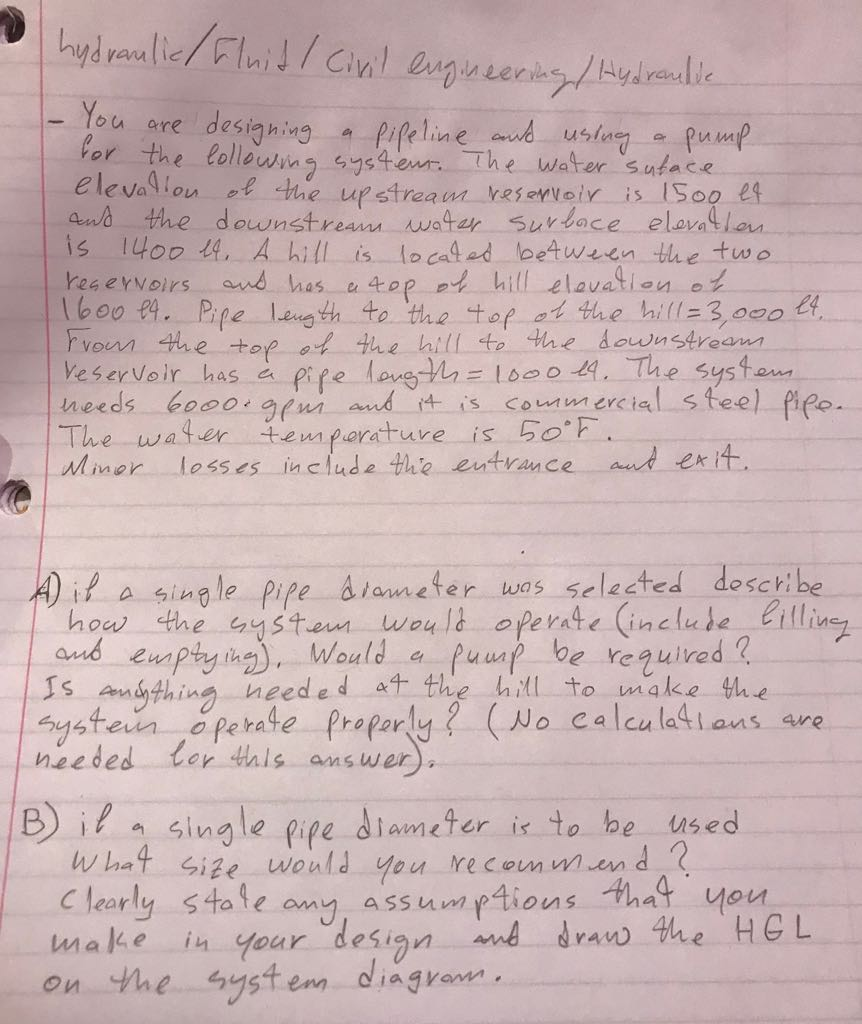 hydraulic/Fluid/Civil engineering/Hydraulic
- You are designing a pipeline and using a pump
for the following system. The water suface
elevation of the upstream reservoir is 1500 ft
and the downstream water surface elevation
is 1400 ft. A hill is located between the two
reservoirs and has a top of hill elevation of
1600 ft. Pipe length to the top of the hill = 3,000 ft.
From the top of the hill to the downstream
reservoir has a pipe length = 1000 ft. The system
needs 6000 gpm and it is commercial steel pipe.
The water temperature is 50°F.
Minor losses include the entrance and exit.
A) if a single pipe diameter was selected describe
how the system would operate (include filling
and emptying). Would a pump be required?
Is anything needed at the hill to make the
system operate properly? (No calculations are
needed for this answer).
B) if a single pipe diameter is to be used
What size would you recommend?
Clearly state any assumptions that you
make in your design and draw the HGL
on the system diagram.